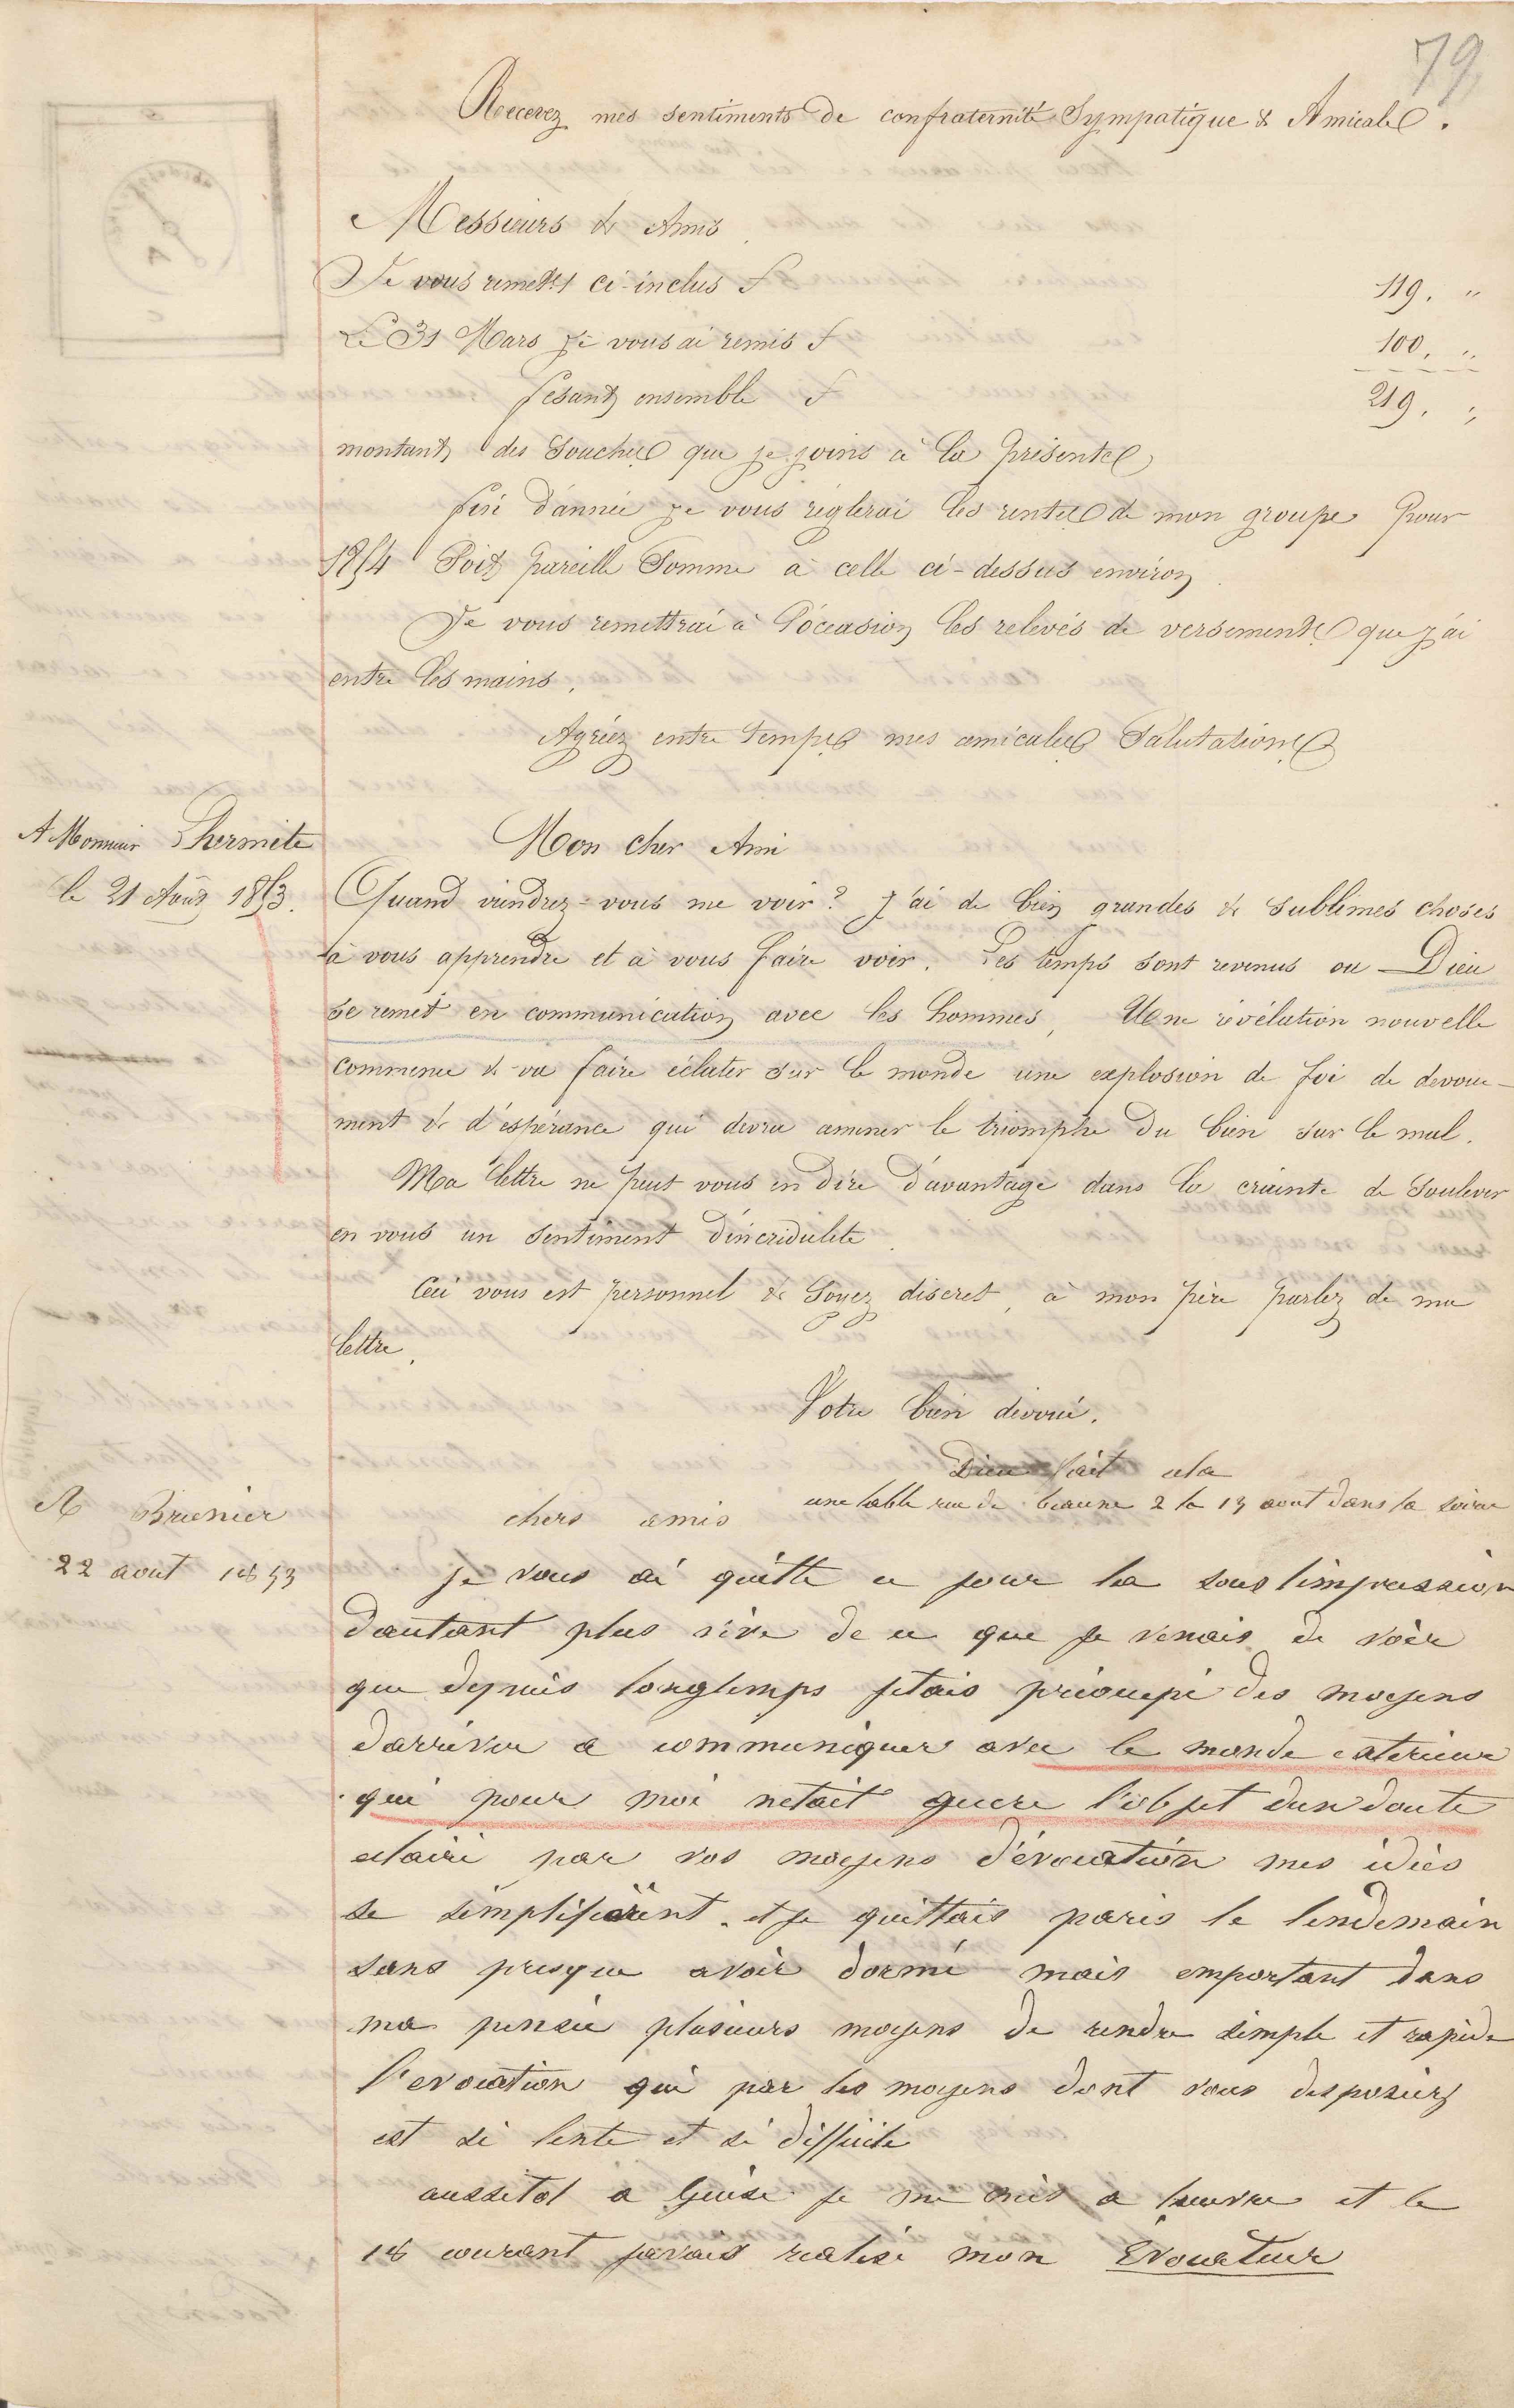 79
Recevez mes sentiments de confraternité Sympatique & Amicale.
Messieurs & Amis
Je vous remets ci-inclus f 119. "
Le 31 Mars je vous ai remis f 100. "
fesant ensemble f 219. "
montant des Souches que je joins à la présente
fin d'année je vous règlerai les rentes de mon groupe pour
1854 Soit pareille Somme à celle ci-dessus environ
Je vous remettrai à l'occasion les relevés de versements que j'ai
entre les mains.
Agréez entre temps mes amicales Salutations
A Monsieur Lhermite
le 21 Août 1853.
Mon cher Ami
Quand viendrez-vous me voir? J'ai de bien grandes & sublimes choses
à vous apprendre et à vous faire voir. Les temps sont revenus ou Dieu
se remet en communication avec les hommes, Une révélation nouvelle
commence & va faire éclater sur le monde une explosion de foi de devoue-
ment & d'espérance qui devra amener le triomphe du bien sur le mal.
Ma lettre ne peut vous en dire d'avantage dans la crainte de soulever
en vous un sentiment d'incrédulité
Ceci vous est personnel & Soyez discret, à mon père parlez de ma
lettre.
Votre bien dévoué.
Dieu fait cela
une table rue de beaune 2 le 13 aout dans la soirée
A Brunier
22 aout 1853
chers amis
je vous ai quitté ce jour la sous l'impression
dautant plus vive de ce que je venais de voir
que depuis longtemps jetais préoccupé des moyens
darriver a communiquer avec le monde exterieur
qui pour moi netait guere l'objet dun doute
eclairé par vos moyens d'évocation mes idées
se simplifièrent. et je quittais paris le lendemain
sans presque avoir dormi mais emportant dans
ma pensée plusieurs moyens de rendre simple et rapide
l'evocation qui par les moyens dont vous disposiez
est si lente et si difficile
aussitot a Guise je me mis a lœuvre et le
18 courant javais realisé mon Evocateur